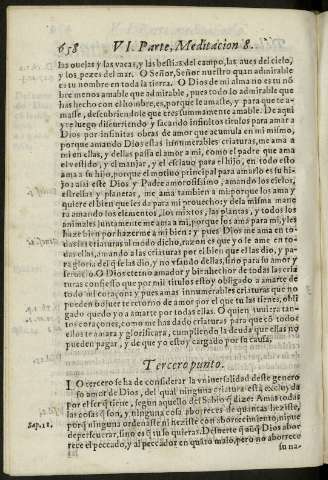 658 VI. Parte, Meditacion 8.
las ouejas y las vacas, y las bestias del campo, las aues del cielo,
y los pezes del mar. O Señor, Señor nuestro quan admirable
es tu nombre en toda la tierra. O Dios de mi alma no es tu nõ
bre menos amable que admirable, pues todo lo admirable que
has hecho con el hombre, es, porque le amaste, y para que te a-
masse, descubriendole que eres summamente amable. De aqui
yre luego discurriendo y sacando infinitos titulos para amar a
Dios por infinitas obras de amor que acumula en mi mismo,
porque amando Dios essas innumerables criaturas, me ama a
mi en ellas, y dellas passa el amor a mi, como el padre que ama
el vestido, y el manjar, y el esclauo para el hijo, en todo esto
ama a su hijo, porque el motiuo principal para amarlo es su hi-
jo: assi este Dios y Padre amorosissimo, amando los cielos,
estrellas y planetas, me ama tambien a mi, porque los ama y
quiere el bien que les da para mi prouecho; y dela misma mane
ra amando los elementos, los mixtos, las plantas, y todos los
animales juntamente me ama a mi, porque los ama para mi, y les
haze bien por hazerme a mi bien: y pues Dios me ama en to-
das las criaturas al modo dicho, razon es que yo le ame en to-
das ellas, amando a las criaturas por el bien que el las dio, y pa-
ra gloria del q̃ se las dio, y no vsando dellas, sino para su amor y
seruicio. O Dios eterno amador y bienhechor de todas las cria
turas confiesso que por mil titulos estoy obligado a amarte de
todo mi coraçon; y pues amas innumerables criaturas que no
pueden boluerte retorno de amor por el que tu las tienes, obli
gado quedo yo a amarte por todas ellas. O quien tuuiera tan-
tos coraçones, como me has dado criaturas para que cõ todos
ellos te amara y glorificara, cumpliendo la deuda que ellas no
pueden pagar, y de que yo estoy cargado por su causa.
Tercero punto.
LO tercero se ha de considerar la vniuersalidad deste genero
so amor de Dios, del qual ninguna criatura està excluyda
por el ser q̃ tiene, segun aquello del Sabio q̃ dize: Amas todas
Sap. 11. las cosas q̃ son, y ninguna cosa aborreces de quantas heziste,
porq̃ ninguna ordenaste ni heziste con aborrecimiento, nique
de perseuerar, sino es q̃ tu lo quieras. Desuerte q̃ aũq̃ Dios abor
rece el peccado, y al peccador en quãto malo, pero no aborrece
su na-